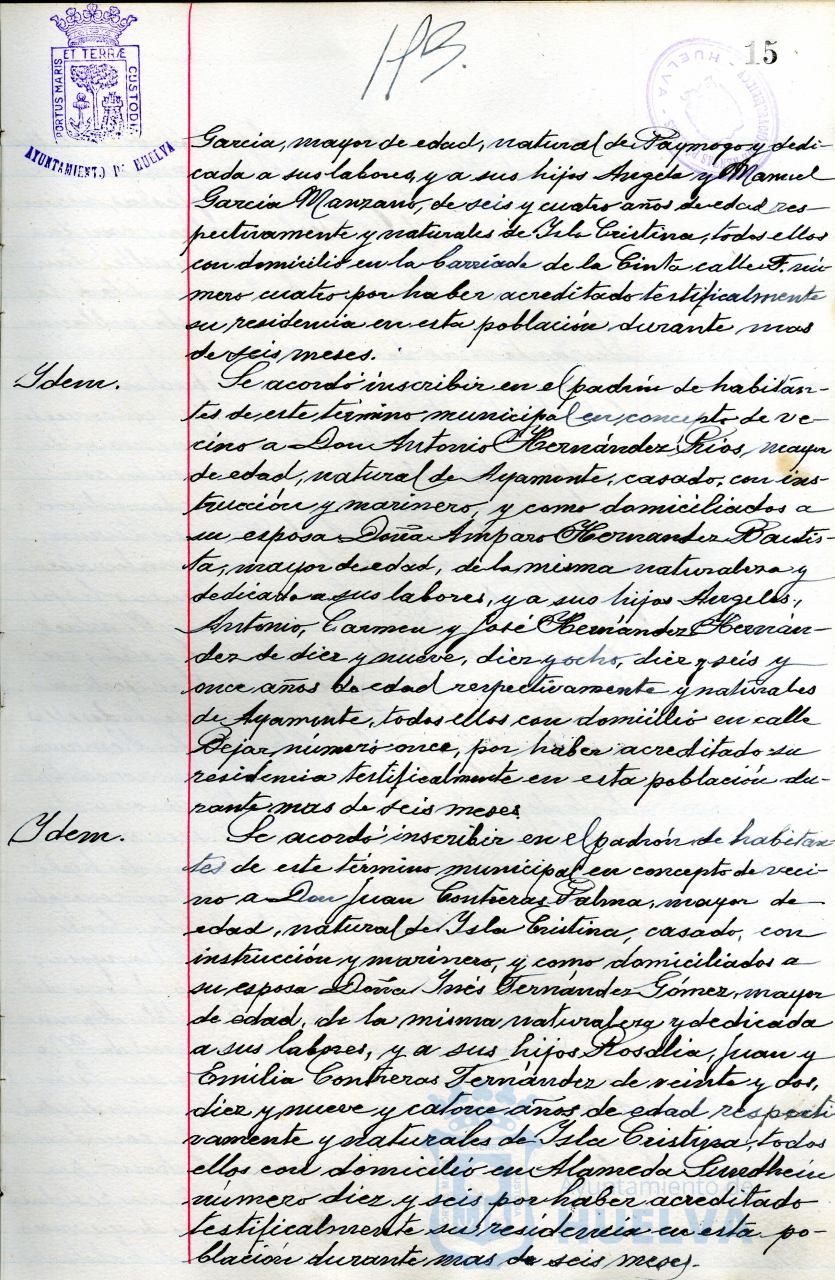 113.
15
PORTUS MARIS ET TERRÆ CUSTODIA
AYUNTAMIENTO DE HUELVA
HUELVA
Garcia, mayor de edad, natural de Paymogo y dedi-
cada a sus labores, y a sus hijos Angela y Manuel
Garcia Manzano, de seis y cuatro años de edad res-
pectivamente y naturales de Isla Cristina, todos ellos
con domicilio en la barriada de la Cinta calle F. nú-
mero cuatro por haber acreditado testificalmente
su residencia en esta población durante mas
de seis meses.
Idem.
Se acordó inscribir en el padrón de habitan-
tes de este término municipal en concepto de ve-
cino a Don Antonio Hernández Rios, mayor
de edad, natural de Ayamonte, casado, con ins-
trucción y marinero, y como domiciliados a
su esposa Doña Amparo Hernandez Bautis-
ta, mayor de edad, de la misma naturaleza y
dedicada a sus labores, y a sus hijos Angeles,
Antonio, Carmen y José Hernández Hernán-
dez de diez y nueve, diez y ocho, diez y seis y
once años de edad respectivamente y naturales
de Ayamonte, todos ellos con domicilio en calle
Bejar, número once, por haber acreditado su
residencia testificalmente en esta población du-
rante mas de seis meses
Idem.
Se acordó inscribir en el padrón de habitan-
tes de este término municipal en concepto de veci-
no a Don Juan Contreras Palma, mayor de
edad, natural de Isla Cristina, casado, con
instrucción y marinero, y como domiciliados a
su esposa Doña Inés Fernández Gómez, mayor
de edad, de la misma naturaleza y dedicada
a sus labores, y a sus hijos Rosalia, Juan y
Emilia Contreras Fernández de veinte y dos,
diez y nueve y catorce años de edad respecti
vamente y naturales de Isla Cristina, todos
ellos con domicilio en Alameda Sundheim
número diez y seis por haber acreditado
testificalmente su residencia en esta po-
blación durante mas de seis meses.
Ayuntamiento de
HUELVA